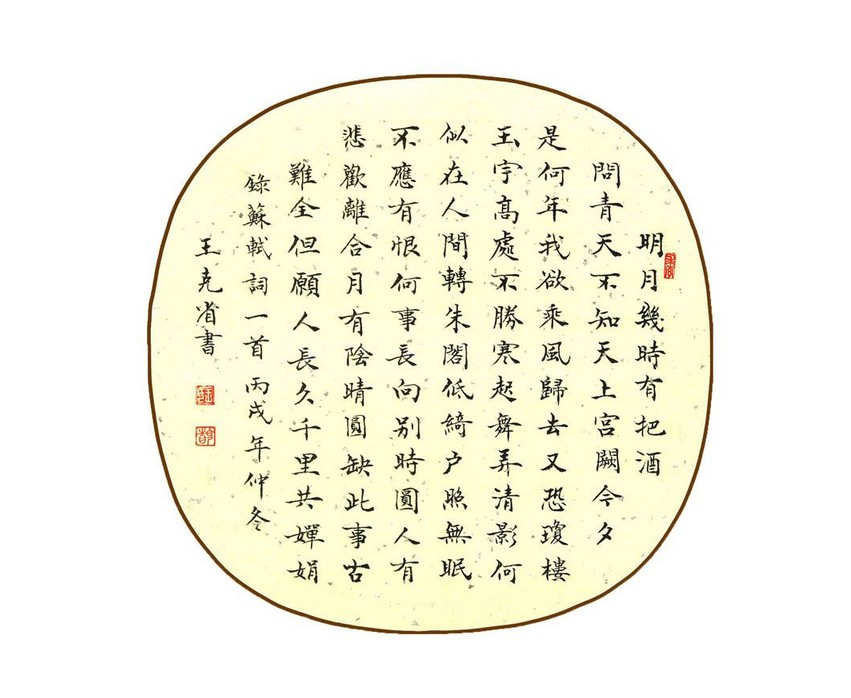 明月幾時有把酒
問青天不知天上宮闕今夕
是何年我欲乘風歸去又恐瓊樓
玉宇高處不勝寒起舞弄清影何
似在人間轉朱閣低綺户照無眠
不應有恨何事長向別時圓人有
悲歡離合月有陰晴圓缺此事古
難全但願人長久千里共嬋娟
錄蘇軾詞一首丙戌年仲冬
王克省書